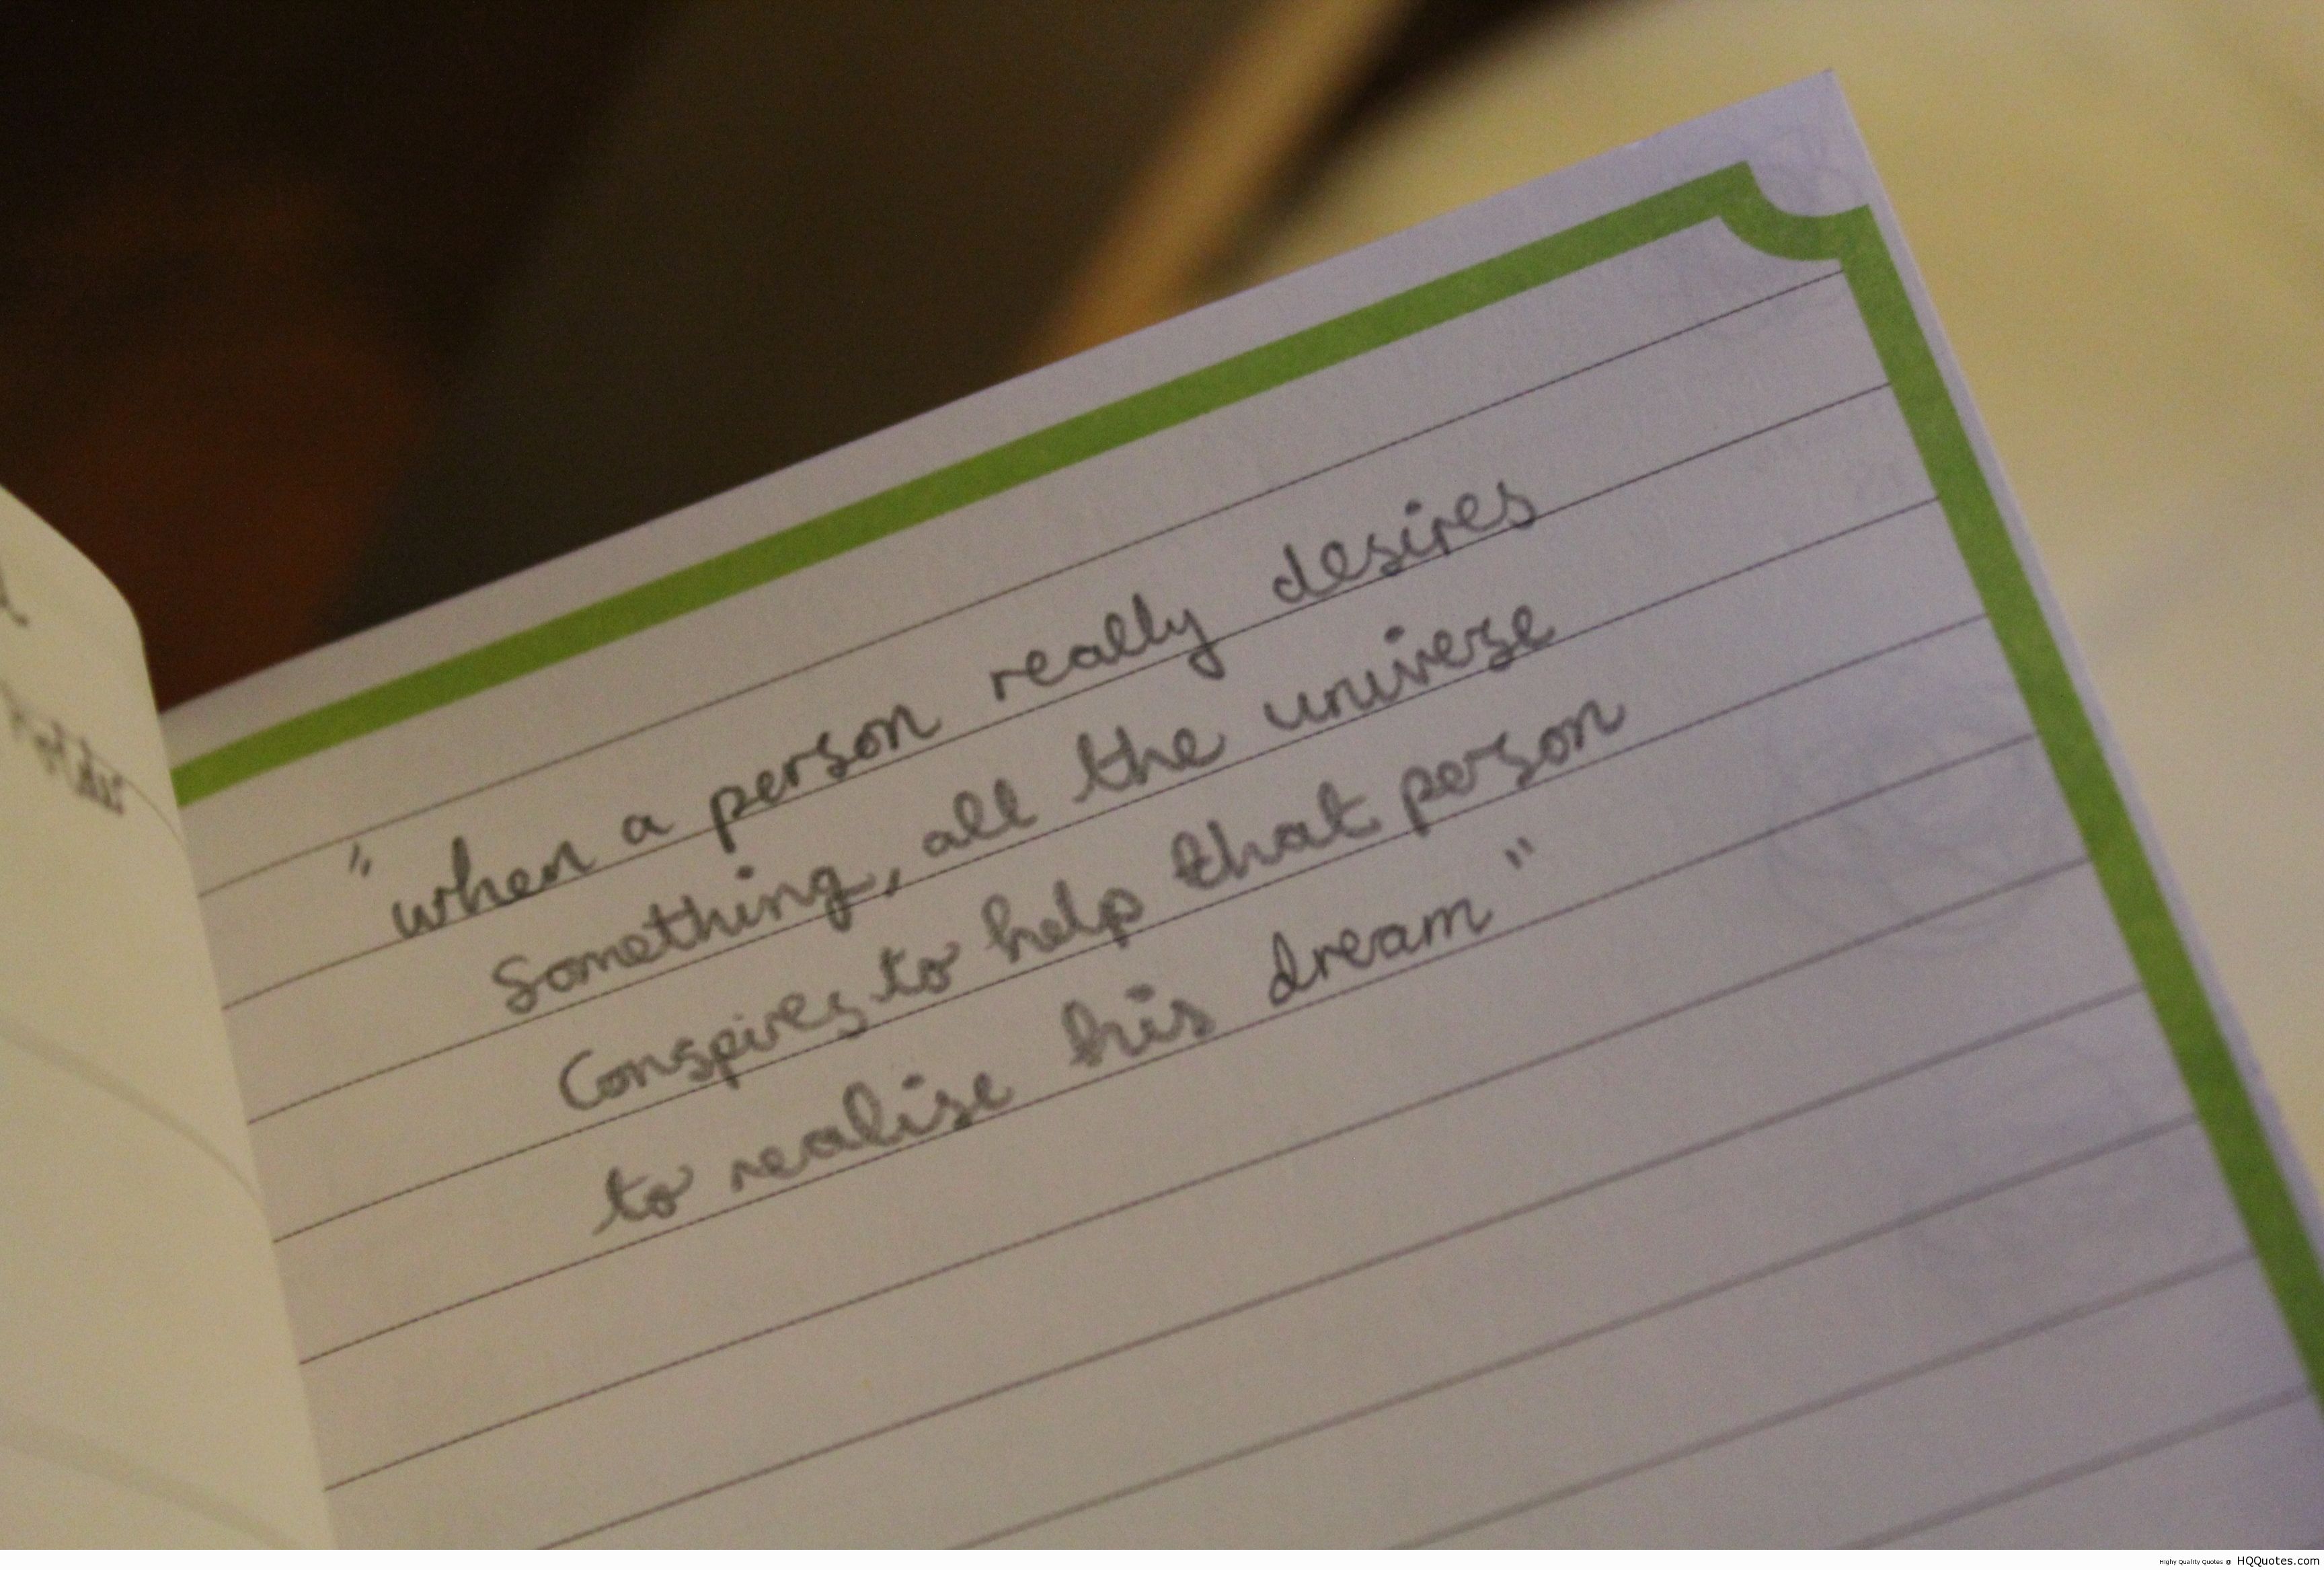 "when a person really desires
Something, all the universe
Conspires to help that person
to realise his dream"
Highy Quality Quotes @ HQQuotes.com